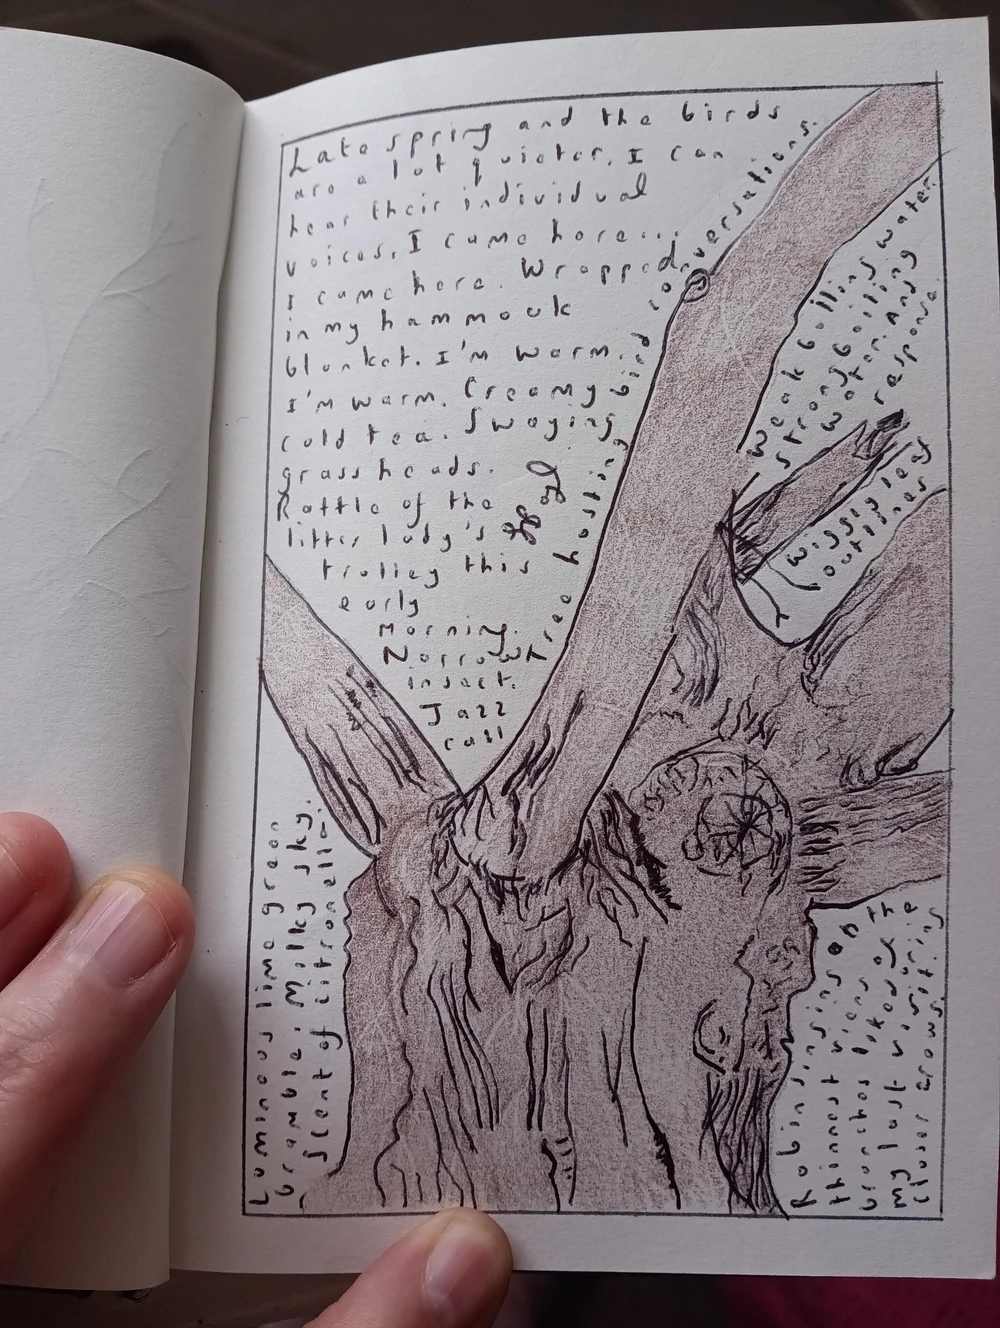 Late spring and the birds
are a lot quieter. I can
hear their individual
voices. I came here...
I came here. Wrapped
in my hammock
blanket. I'm warm.
I'm warm. Creamy
cold tea. Swaying
grass heads.
Rattle of the
litter lady's
trolley this
early
morning.
Narrow
insect.
Jazz
call
Tree hosting bird conversations.
Weak boiling water.
Strong boiling
water. And
response.
Wiggly leaf
outlines
Luminous lime green
bramble. Milky sky.
Scent of citronella
Robin sinsins on
thinnest
branches liked
my last visit
closer